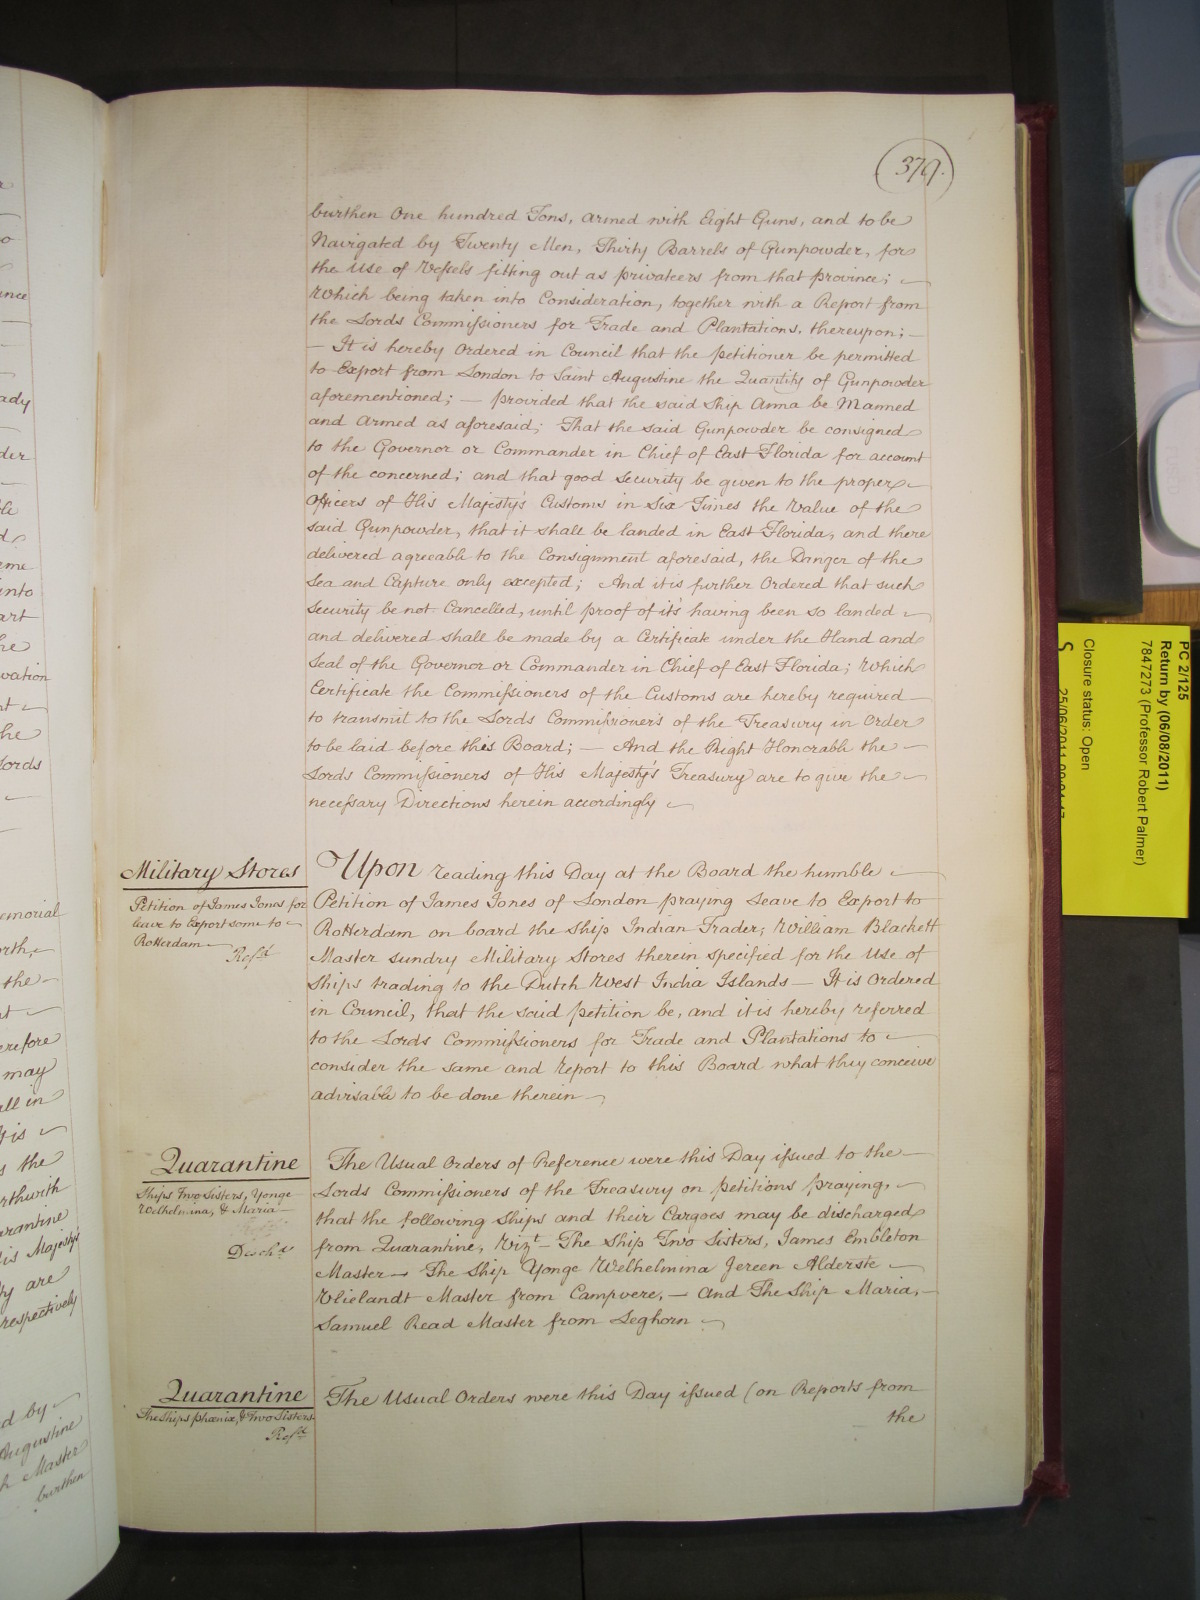 379.
burthen One hundred Tons, armed with Eight Guns, and to be
Navigated by Twenty Men, Thirty Barrels of Gunpowder, for
the Use of Vessels fitting out as privateers from that province;
Which being taken into Consideration, together with a Report from
the Lords Commissioners for Trade and Plantations, thereupon; —
— It is hereby Ordered in Council that the petitioner be permitted
to Export from London to Saint Augustine the Quantity of Gunpowder
aforementioned; — provided that the said Ship Anna be Manned
and Armed as aforesaid; That the said Gunpowder be consigned
to the Governor or Commander in Chief of East Florida for account
of the concerned; and that good Security be given to the proper
Officers of His Majesty's Customs in Six Times the Value of the
said Gunpowder, that it shall be landed in East Florida, and there
delivered agreeable to the Consignment aforesaid, the Danger of the
Sea and Capture only excepted; And it is further Ordered that such
Security be not Cancelled, until proof of it's having been so landed
and delivered shall be made by a Certificate under the Hand and
Seal of the Governor or Commander in Chief of East Florida; Which
Certificate the Commissioners of the Customs are hereby required
to transmit to the Lords Commissioners of the Treasury in Order
to be laid before this Board; — And the Right Honorable the
Lords Commissioners of His Majesty's Treasury are to give the
necessary Directions herein accordingly
Military Stores
Petition of James Jones for
leave to Export some to
Rotterdam
Refd
Upon reading this Day at the Board the humble
Petition of James Jones of London praying Leave to Export to
Rotterdam on board the Ship Indian Trader, William Blackett
Master sundry Military Stores therein specified for the Use of
Ships trading to the Dutch West India Islands — It is Ordered
in Council, that the said petition be, and it is hereby referred
to the Lords Commissioners for Trade and Plantations to
consider the same and Report to this Board what they conceive
advisable to be done therein
Quarantine
Ships Two Sisters, Yonge
Welhelmina, & Maria
Dischd
The Usual Orders of Reference were this Day issued to the
Lords Commissioners of the Treasury on petitions praying,
that the following Ships and their Cargoes may be discharged
from Quarantine, Vizt — The Ship Two Sisters, James Embleton
Master — The Ship Yonge Welhelmina Jereen Alderste
Vlielandt Master from Campvere, — And The Ship Maria, —
Samuel Read Master from Leghorn
Quarantine
The Ships Phœnix, & Two Sisters
Refd
The Usual Orders were this Day issued (on Reports from
the
PC 2/125
Return by (06/08/2011)
7847273 (Professor Robert Palmer)
Closure status: Open
S